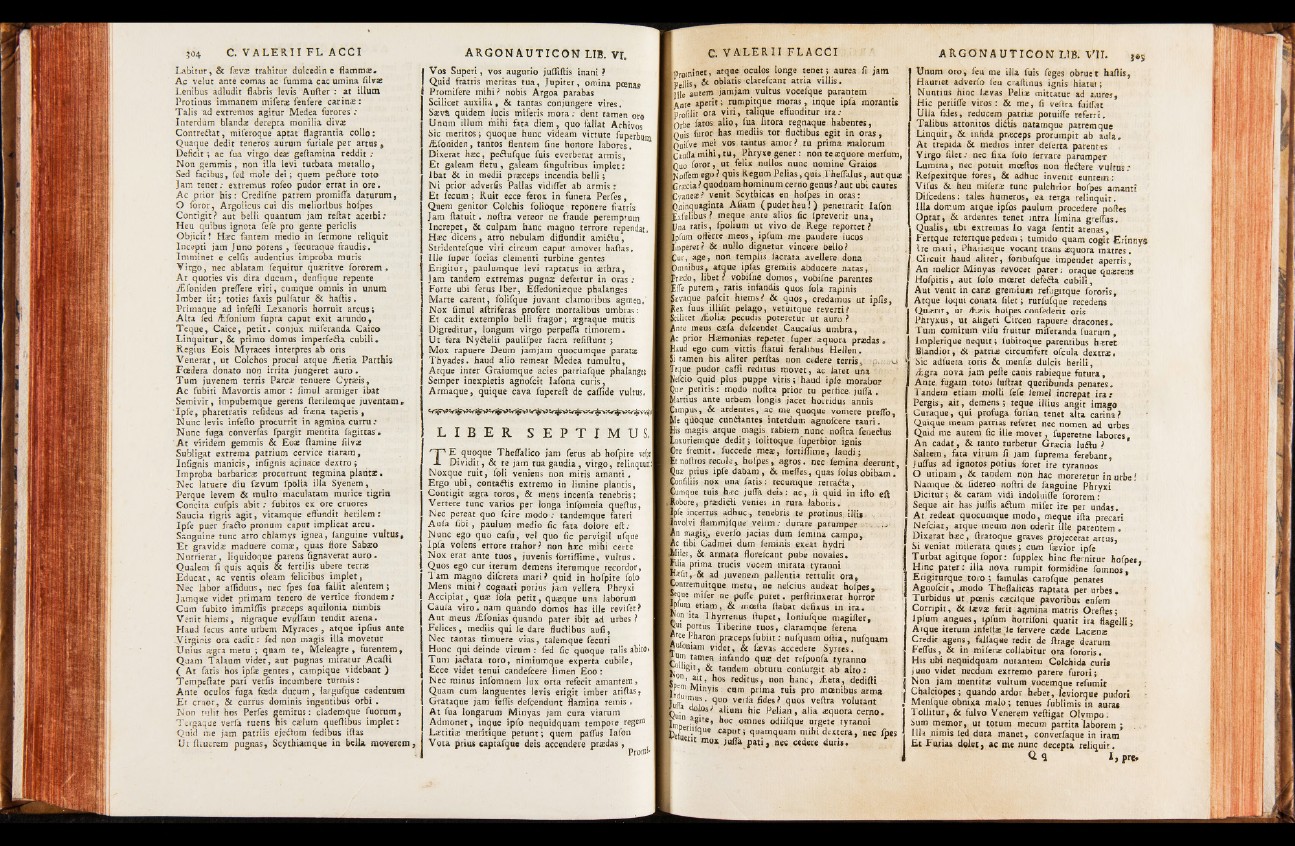 304 C. VALERII FLACCI
Labitur, & ſævæ trahitur dulcedine flammæ.
Ac velut ante comas ac ſumma cacumina ſilvæ
Lenibus adludit flabris levis Auſter : at illum
Protinus immanem miſeræ ſenſere carinæ :
Talis ad extremos agitur Medea furores :
Interdum blandæ decepta monilia divæ
Contrectat, miſeroque aptat flagrantia collo :
Quaque dedit teneros aurum furiale per artus,
Deficit ; ac ſua virgo deæ geſtamina reddit :
Non gemmis, non illa levi turbata metallo,
Sed facibus, ſed mole dei ; quem pectore toto
Jam tenet : extremus roſeo pudor errat in ore.
Ac prior his : Crediſne patrem promiſſa daturum,
O ſoror, Argolicus cui dis melioribus hoſpes
Contigit ? aut belli quantum jam reſtat acerbi :
Heu quibus ignota ſeſe pro gente periclis
Objicit ! Hæc fantem medio in ſermone reliquit
Incepti jam Juno potens, ſecumque fraudis.
Imminet e celſis audentius improba muris
Virgo, nec ablatam ſequitur quæritve ſororem.
At quoties vis dira ducum, denſique repente
Æſoniden preſſere viri, cumque omnis in unum
Imber iit ; toties ſaxis pulſatur & haſtis.
Primaque ad infeſti Lexanoris horruit arcus :
Alta ſed Æſonium ſupra caput exit arundo,
Teque, Caice, petit. conjux miſeranda Caico
Linquitur, & primo domus imperfecta cubili.
Regius Eois Myraces interpres ab oris
Venerat, ut Colchos procul atque Æetia Parthis
Fœdera donato non irrita jungeret auro.
Tum juvenem terris Parcæ tenuere Cytæis,
Ac ſubiti Mavortis amor : ſimul armiger ibat
Semivir, impubemque gerens ſterilemque juventam.
Ipſe, pharetratis reſidens ad fræna tapetis,
Nunc levis infeſto procurrit in agmina curru :
Nunc fuga converſas ſpargit mentita ſagittas.
At viridem gemmis & Eoæ ſtamine ſilvæ
Subligat extrema patrium cervice tiaram,
Inſignis manicis, inſignis acinace dextro ;
Improba barbaricæ procurrunt tegmina plantæ.
Nec latuere diu ſævum ſpolia illa Syenem,
Perque levem & multo maculatam murice tigrin
Concita cuſpis abit : ſubitos ex ore cruores
Saucia tigris agit, vitamque effundit herilem :
Ipſe puer fracto pronum caput implicat arcu.
Sanguine tunc atro chlamys ignea, ſanguine vultus,
Et gravidæ maduere comæ, quas flore Sabæo
Nutrierat, liquidoque parens ſignaverat auro.
Qualem ſi quis aquis & fertilis ubere terræ
Educat, ac ventis oleam felicibus implet,
Nec labor aſſiduus, nec ſpes ſua fallit alentem ;
Jamque videt primam tenero de vertice frondem :
Cum ſubito immiſſis præceps aquilonia nimbis
Venit hiems, nigraque evulſam tendit arena.
Haud ſecus ante urbem Myraces, atque ipſius ante
Virginis ora cadit : ſed non magis illa movetur
Unius ægra metu ; quam te, Meleagre, furentem,
Quam Talaum videt, aut pugnas miratur Acaſti
( At fatis hos ipſæ gentes, campique videbant )
Tempeſtate pari verſis incumbere turmis :
Ante oculos fuga fœda ducum, larguſque cadentum
Et cruor, & currus dominis ingentibus orbi.
Non tulit hos Perſes gemitus : clademque ſuorum,
Tergaque verſa tuens his cælum queſtibus implet :
Quid me jam patriis ejectum ſedibus iſtas
Ut fluerem pugnas, Scythiamque in bella moverem,
ARGONAUTICON LIB. VI.
Vos Superi, vos augurio juſſiſtis inani ?
Quid fratris meritas tua, Jupiter, omina pœnas
Promiſere mihi ? nobis Argoa parabas
Scilicet auxilia, & tantas conjungere vires.
Sævæ quidem lucis miſeris mora : dent tamen oro
Unum illum mihi fata diem, quo fallat Achivos
Sic meritos ; quoque hunc videam virtute ſuperbum
Æſoniden, tantos flentem ſine honore labores.
Dixerat hæc, pectuſque ſuis everberat armis,
Et galeam fletu, galeam ſingultibus implet :
Ibat & in medii præceps incendia belli ;
Ni prior adverſis Pallas vidiſſet ab armis :
Et ſecum ; Ruit ecce ferox in funera Perſes,
Quem genitor Colchis ſolioque reponere fratris
Jam ſtatuit. noſtra vereor ne fraude peremptum
Increpet, & culpam hanc magno terrore rependat.
Hæc dicens, atro nebulam diffundit amictu,
Stridenteſque viri circum caput amovet haſtas.
Ille ſuper ſocias clementi turbine gentes
Erigitur, paulumque levi raptatus in æthra,
Jam tandem extremas pugnæ defertur in oras :
Forte ubi ſerus Iber, Eſſedoniæque phalanges
Marte carent, ſoliſque juvant clamoribus agmen.
Nox ſimul aſtriferas profert mortalibus umbras :
Et cadit extemplo belli fragor ; ægraque muris
Digreditur, longum virgo perpeſſa timorem.
Ut fera Nyctelii pauliſper ſacra reſiſtunt ;
Mox rapuere Deum jamjam quocumque paratæ
Thyades. haud alio remeat Medea tumultu,
Atque inter Graiumque acies patriaſque phalanges
Semper inexpletis agnoſcit Iaſona curis,
Armaque, quique cava ſupereſt de caſſide vultus.
LIBER SEPTIMUS.
TE quoque Theſſalico jam ſerus ab hoſpite veſper
Dividit, & te jam tua gaudia, virgo, relinquunt :
Noxque ruit, ſoli veniens non miris amanti.
Ergo ubi, contactis extremo in limine plantis,
Contigit ægra toros, & mens incenſa tenebris ;
Vertere tunc varios per longa inſomnia queſtus,
Nec pereat quo ſcire modo : tandemque fateri
Auſa ſibi, paulum medio ſic fata dolore eſt.
Nunc ego quo caſu, vel quo ſic pervigil uſque
Ipſa volens errore trahor ? non hæc mihi certe
Nox erat ante tuos, juvenis fortiſſime, vultus.
Quos ego cur iterum demens iterumque recordor,
Tam magno diſcreta mari ? quid in hoſpite ſolo
Mens mihi ? cognati potius jam vellera Phryxi
Accipiat, quæ ſola petit, quæque una laborum
Cauſa viro. nam quando domos has ille reviſet ?
Aut meus Æſonias quando pater ibit ad urbes ?
Felices, mediis qui ſe dare fluctibus auſi,
Nec tantas timuere vias, talemque ſecuti
Huc qui deinde virum : ſed ſic quoque talis abito.
Tum jactata toro, nimiomque experta cubile,
Ecce videt tenui candeſcere limen Eoo :
Nec minus inſomnem lux orta refecit amantem,
Quam cum languentes levis erigit imber ariſtas,
Grataque jam feſſis deſcendunt flamina remis.
At ſua longarum Minyas jam cura viarum
Admonet, inque ipſo nequidquam tempore regem
Lætitiæ meritique petunt ; quem paſſus Iaſon
Vota prius captaſque deis accendere prædas,
Promi-
C. VALERII FLACCI
Prominet, atque oculos longe tenet ; aurea ſi jam
Pellis, & oblatis clareſcant atria villis.
Ille autem jamjam vultus voceſque parantem
Ante aperit ; rumpitque moras, inque ipſa morantis
Profilit ora viri, talique effunditur ira :
Orbe ſatos alio, ſua litora regnaque habentes,
Quis furor has mediis tot fluctibus egit in oras,
Quiſve mei vos tantus amor ? tu prima malorum
Cauſſa mihi, tu, Phryxe gener : non te æquore merſum,
Quo ſoror, ut felix nullos nunc nomine Graios
Noſſem ego ? quis Regum Pelias, quis Theſſalus, aut quæ
Græcia ? quodnam hominum cerno genus ? aut ubi cautes
Cyaneæ ? venit Scythicas en hoſpes in oras :
Quinquaginta Aſiam ( pudet heu ! ) penetrarit Iaſon
Exſulibus ? meque ante alios ſic ſpreverit una,
Una ratis, ſpolium ut vivo de Rege reportet ?
Ipſum offerre meos, ipſum me pandere lucos
Imperet ? & nullo dignetur vincere bello ?
Cur, age, non templis ſacrata avellere dona
Omnibus, atque ipſas gremiis abducere natas,
Prædo, libet ? vobiſne domos, vobiſne parentes
Eſſe putem, ratis infandis quos ſola rapinis
Sævaque paſcit hiems ? & quos, credamus ut ipſis,
Rex ſuus illiſit pelago, vetuitque reverti ?
Scilicet Æoliæ pecudis poteretur ut auro ?
Ante meus cæſa deſcendet Caucaſus umbra,
Ac prior Hæmonias repetet ſuper æquora prædas.
Haud ego cum vittis ſtatui feralibus Hellen.
Si tamen his aliter perſtas non cedere terris,
Teque pudor caſſi reditus movet, ac latet una
Neſcio quid plus puppe viris ; haud ipſe morabor
Quæ petitis : modo noſtra prior tu perfice juſſa.
Martius ante urbem longis jacet horridus annis
Campus, & ardentes, ac me quoque vomere preſſo,
Me quoque cunctantes interdum agnoſcere tauri.
His magis atque magis rabiem nunc noſtra ſenectus
Luxuriemque dedit ; ſolitoque ſuperbior ignis
Ore fremit. ſuccede meæ, fortiſſime, laudi ;
Et noſtros recole, hoſpes, agros. nec ſemina deerunt,
Quæ prius ipſe dabam, & meſſes, quas ſolus obibam.
Conſiliis nox una ſatis : tecumque retracta,
Cumque tuis hæc juſſa deis : ac, ſi quid in iſto eſt
Robore, prædicti venies in rura laboris.
Ipſe incertus adhuc, tenebris te protinus illis
Involvi flammiſque velim : durare parumper
An magis, everſo jacias dum ſemina campo,
Ac tibi Cadmei dum ſeminis exeat hydri
Miles, & armata floreſcant pube novales.
Filia prima trucis vocem mirata tyranni
Hæſit, & ad juvenem pallentia rettulit ora,
Contremuitque metu, ne neſcius audeat hoſpes,
Seque miſer ne poſſe putet. perſtrinxerat horror
Ipſum etiam, & mœſtia ſtabat defixus in ira.
Non ita Tyrrhenus ſtupet, Ioniuſque magiſter,
Qui portus Tiberine tuos, claramque ſerena
Arce Pharon præceps ſubiit : nuſquam oſtia, nuſquam
Auſoniam videt, & ſævas accedere Syrtes.
Tum tamen infando quæ det reſponſa tyranno
Colligit, & tandem obtutu conſurgit ab alto :
Non, ait, hos reditus, non hanc, Æeta, dediſti
Spem Minyis cum prima tuis pro mœnibus arma
Induimus. quo verſa fides ? quos veſtra volutant
Juſſa dolos ? alium hic Pelian, alia æquora cerno.
Quin agite, hoc omnes odiiſque urgete tyranni
Imperiiſque caput ; quamquam mihi dextera, nec ſpes
Defuerit mox juſſa pati, nec cedere duris.
ARGONAUTICON LIB. VII. 305
Unum oro, ſeu me illa ſuis ſeges obruet haſtis,
Hauriet adverſo ſeu craſtinus ignis hiatu ;
Nuntius hinc ſævas Peliæ mittatur ad aures,
Hic periiſſe viros : & me, ſi veſtra fuiſſet
Ulla fides, reducem patriæ potuiſſe referri.
Talibus attonitos dictis natamque patremque
Linquit, & infida præceps prorumpit ab aula.
At trepida & medios inter deſerta parentes
Virgo ſilet : nec fixa ſolo ſervare parumper
Lumina, nec potuit mœſtos non flectere vultus :
Reſpexitque fores, & adhuc invenit euntem :
Viſus & heu miſeræ tunc pulchrior hoſpes amanti
Diſcedens : tales humeros, ea terga relinquit.
Illa domum atque ipſos paulum procedere poſtes
Optat, & ardentes tenet intra limina greſſus.
Qualis, ubi extremas Io vaga ſentit arenas,
Fertque refertque pedem ; tumido quam cogit Erinnys
Ire mari, Phariæque vocant trans æquora matres.
Circuit haud aliter, foribuſque impendet apertis,
An melior Minyas revocet pater : oraque quærens
Hoſpitis, aut ſolo mœret defecta cubili,
Aut venit in caræ gremium refugitque ſororis,
Atque loqui conata ſilet ; rurſuſque recedens
Quærit, ut Ææis hoſpes conſederit oris
Phryxus, ut aligeri Circen rapuere dracones.
Tum comitum viſu fruitur miſeranda ſuarum,
Implerique nequit ; ſubitoque parentibus hæret
Blandior, & patriæ circumfert oſcula dextræ.
Sic adſueta toris & menſæ dulcis herili,
Ægra nova jam peſte canis rabieque futura,
Ante fugam totos luſtrat queribunda penates.
Tandem etiam molli ſeſe ſemel increpat ira :
Pergis, ait, demens ; teque illius angit imago
Curaque, qui profuga forſan tenet alta carina ?
Quique meum patrias referet nec nomen ad urbes.
Quid me autem ſic ille movet, ſuperetne labores,
An cadat, & tanto turbetur Græcia luctu ?
Saltem, fata virum ſi jam ſuprema ferebant,
Juſſus ad ignotos potius foret ire tyrannos
O utinam, & tandem non hac moreretur in urbe !
Namque & ſidereo noſtri de ſanguine Phryxi
Dicitur ; & caram vidi indoluiſſe ſororem :
Seque ait has juſſis actum miſer ire per undas.
At redeat quocumque modo, meque iſta precari
Neſciat, atque meum non oderit ille parentem.
Dixerat hæc, ſtratoque graves projecerat artus,
Si veniat miſerata quies ; cum ſævior ipſe
Turbat agitque ſopor : ſupplex hinc ſternitur hoſpes,
Hinc pater : illa nova rumpit formidine ſomnos,
Erigiturque toro ; famulas caroſque penates
Agnoſcit, modo Theſſalicas raptata per urbes.
Turbidus ut pœnis cæciſque pavoribus enſem
Corripit, & ſævæ ferit agmina matris Oreſtes ;
Ipſum angues, ipſum horriſoni quatit ira flagelli ;
Atque iterum infeſtæ ſe fervere cæde Lacænæ
Credit agens, falſaque redit de ſtrage dearum
Feſſus, & in miſeræ collabitur ora ſororis.
His ubi nequidquam nutantem Colchida curis
Juno videt necdum extremo parere furori ;
Non jam mentitæ vultum vocemque reſumit
Chalciopes ; quando ardor hebet, leviorque pudori
Menſque obnixa malo ; tenues ſublimis in auras
Tollitur, & fulvo Venerem veſtigat Olympo.
Sum memor, ut totum mecum partita laborem ;
Illa nimis ſed dura manet, converſaque in iram
Et Furias dolet, ac me nunc decepta reliquit.
Q q I, pre-